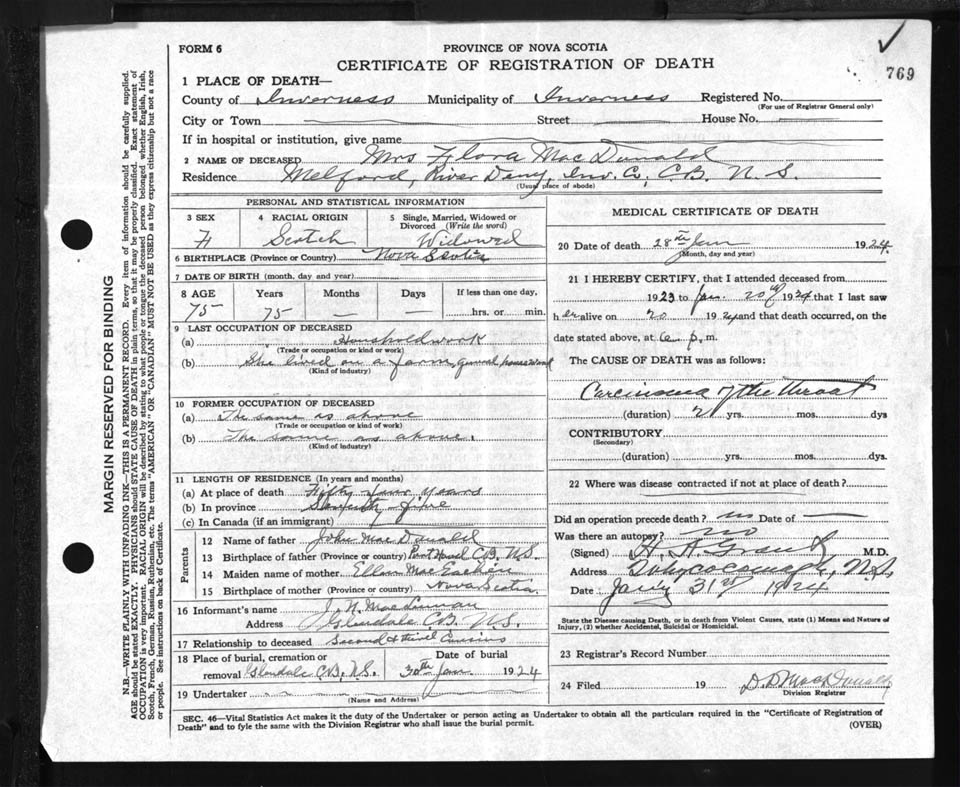 FORM 6
PROVINCE OF NOVA SCOTIA
CERTIFICATE OF REGISTRATION OF DEATH
769
1 PLACE OF DEATH—
County of Inverness Municipality of Inverness Registered No.
(For use of Registrar General only)
City or Town Street House No.
If in hospital or institution, give name
2 NAME OF DECEASED Mrs Flora MacDonald
Residence Melford, River Deny, Inv. Co, C.B. N.S.
(Usual place of abode)
PERSONAL AND STATISTICAL INFORMATION
3 SEX 4 RACIAL ORIGIN 5 Single, Married, Widowed or Divorced (Write the word)
F Scotch Widowed
6 BIRTHPLACE (Province or Country) Nova Scotia
7 DATE OF BIRTH (month, day and year)
8 AGE Years Months Days If less than one day,
75 75 — — hrs. or min.
9 LAST OCCUPATION OF DECEASED
(a) Household work
(Trade or occupation or kind of work)
(b) She lived on a farm, general housework
(Kind of industry)
10 FORMER OCCUPATION OF DECEASED
(a) The same as above
(Trade or occupation or kind of work)
(b) The same as above.
(Kind of industry)
11 LENGTH OF RESIDENCE (In years and months)
(a) At place of death Fifty four years
(b) In province Seventy-five
(c) In Canada (if an immigrant)
Parents
12 Name of father John MacDonald
13 Birthplace of father (Province or country) Port Hood C.B. N.S.
14 Maiden name of mother Ellen MacEachen
15 Birthplace of mother (Province or country) Nova Scotia
16 Informant's name J. N. MacLennan
Address Glendale C.B. N.S.
17 Relationship to deceased Second & third Cousins
18 Place of burial, cremation or removal Glendale C.B. N.S. Date of burial 30th Jan 1924
19 Undertaker
(Name and Address)
MEDICAL CERTIFICATE OF DEATH
20 Date of death 28th Jan 1924.
(Month, day and year)
21 I HEREBY CERTIFY, that I attended deceased from
1923 to Jan. 20th 1924 that I last saw
her alive on 20 1924 and that death occurred, on the
date stated above, at 6 p. m.
The CAUSE OF DEATH was as follows:
Carcinoma of the throat
(duration) 2 yrs. mos. dys
CONTRIBUTORY
(Secondary)
(duration) yrs. mos. dys
22 Where was disease contracted if not at place of death?
Did an operation precede death? no Date of —
Was there an autopsy? no
(Signed) H. A. Grant M.D.
Address Whycocomagh, N.S.
Date Jan'y 31st 1924
State the Disease causing Death, or in death from Violent Causes, state (1) Means and Nature of
Injury, (2) whether Accidental, Suicidal or Homicidal.
23 Registrar's Record Number
24 Filed 19 D. D. MacDonald
Division Registrar
SEC. 46—Vital Statistics Act makes it the duty of the Undertaker or person acting as Undertaker to obtain all the particulars required in the "Certificate of Registration of
Death" and to fyle the same with the Division Registrar who shall issue the burial permit.
(OVER)
MARGIN RESERVED FOR BINDING
N.B.—WRITE PLAINLY WITH UNFADING INK—THIS IS A PERMANENT RECORD. Every item of information should be carefully supplied.
AGE should be stated EXACTLY. PHYSICIANS should STATE CAUSE OF DEATH in plain terms, so that it may be properly classified. Exact statement of
OCCUPATION is very important. RACIAL ORIGIN will be described by stating to what people or tongue the deceased person belonged whether English, Irish,
Scotch, French, German, Russian, Ruthenian, etc. The terms "AMERICAN" OR "CANADIAN" MUST NOT BE USED as they express citizenship but not a race
or people. See instructions on back of Certificate.